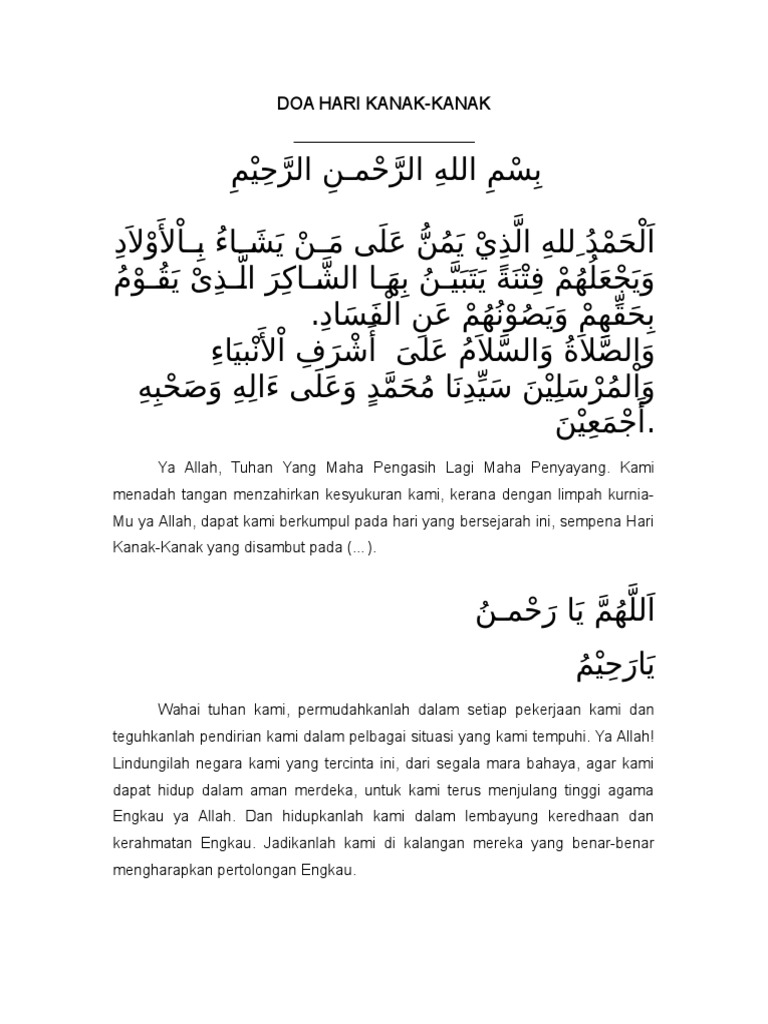 DOA HARI KANAK-KANAK
بِسْمِ اللهِ الرَّحْمـنِ الرَّحِيْمِ
اَلْحَمْدُ ِللهِ الَّذِيْ يَمُنُّ عَلَى مَـنْ يَشَـاءُ بِـاْلأَوْلاَدِ
وَيَجْعَلُهُمْ فِتْنَةً يَتَبَيَّـنُ بِهَـا الشَّـاكِرَ الَّـذِىْ يَقُـوْمُ
بِحَقِّهِمْ وَيَصُوْنُهُمْ عَنِ الْفَسَادِ.
وَالصَّلاَةُ وَالسَّلاَمُ عَلَىَ أَشْرَفِ اْلأَنْبِيَاءِ
وَاْلمُرْسَلِيْنَ سَيِّدِنَا مُحَمَّدٍ وَعَلَى ءَالِهِ وَصَحْبِهِ
أَجْمَعِيْنَ.
Ya Allah, Tuhan Yang Maha Pengasih Lagi Maha Penyayang. Kami
menadah tangan menzahirkan kesyukuran kami, kerana dengan limpah kurnia-
Mu ya Allah, dapat kami berkumpul pada hari yang bersejarah ini, sempena Hari
Kanak-Kanak yang disambut pada (... ).
اَللَّهُمَّ يَا رَحْمـنُ
يَارَحِيْمُ
Wahai tuhan kami, permudahkanlah dalam setiap pekerjaan kami dan
teguhkanlah pendirian kami dalam pelbagai situasi yang kami tempuhi. Ya Allah!
Lindungilah negara kami yang tercinta ini, dari segala mara bahaya, agar kami
dapat hidup dalam aman merdeka, untuk kami terus menjulang tinggi agama
Engkau ya Allah. Dan hidupkanlah kami dalam lembayung keredhaan dan
kerahmatan Engkau. Jadikanlah kami di kalangan mereka yang benar-benar
mengharapkan pertolongan Engkau.